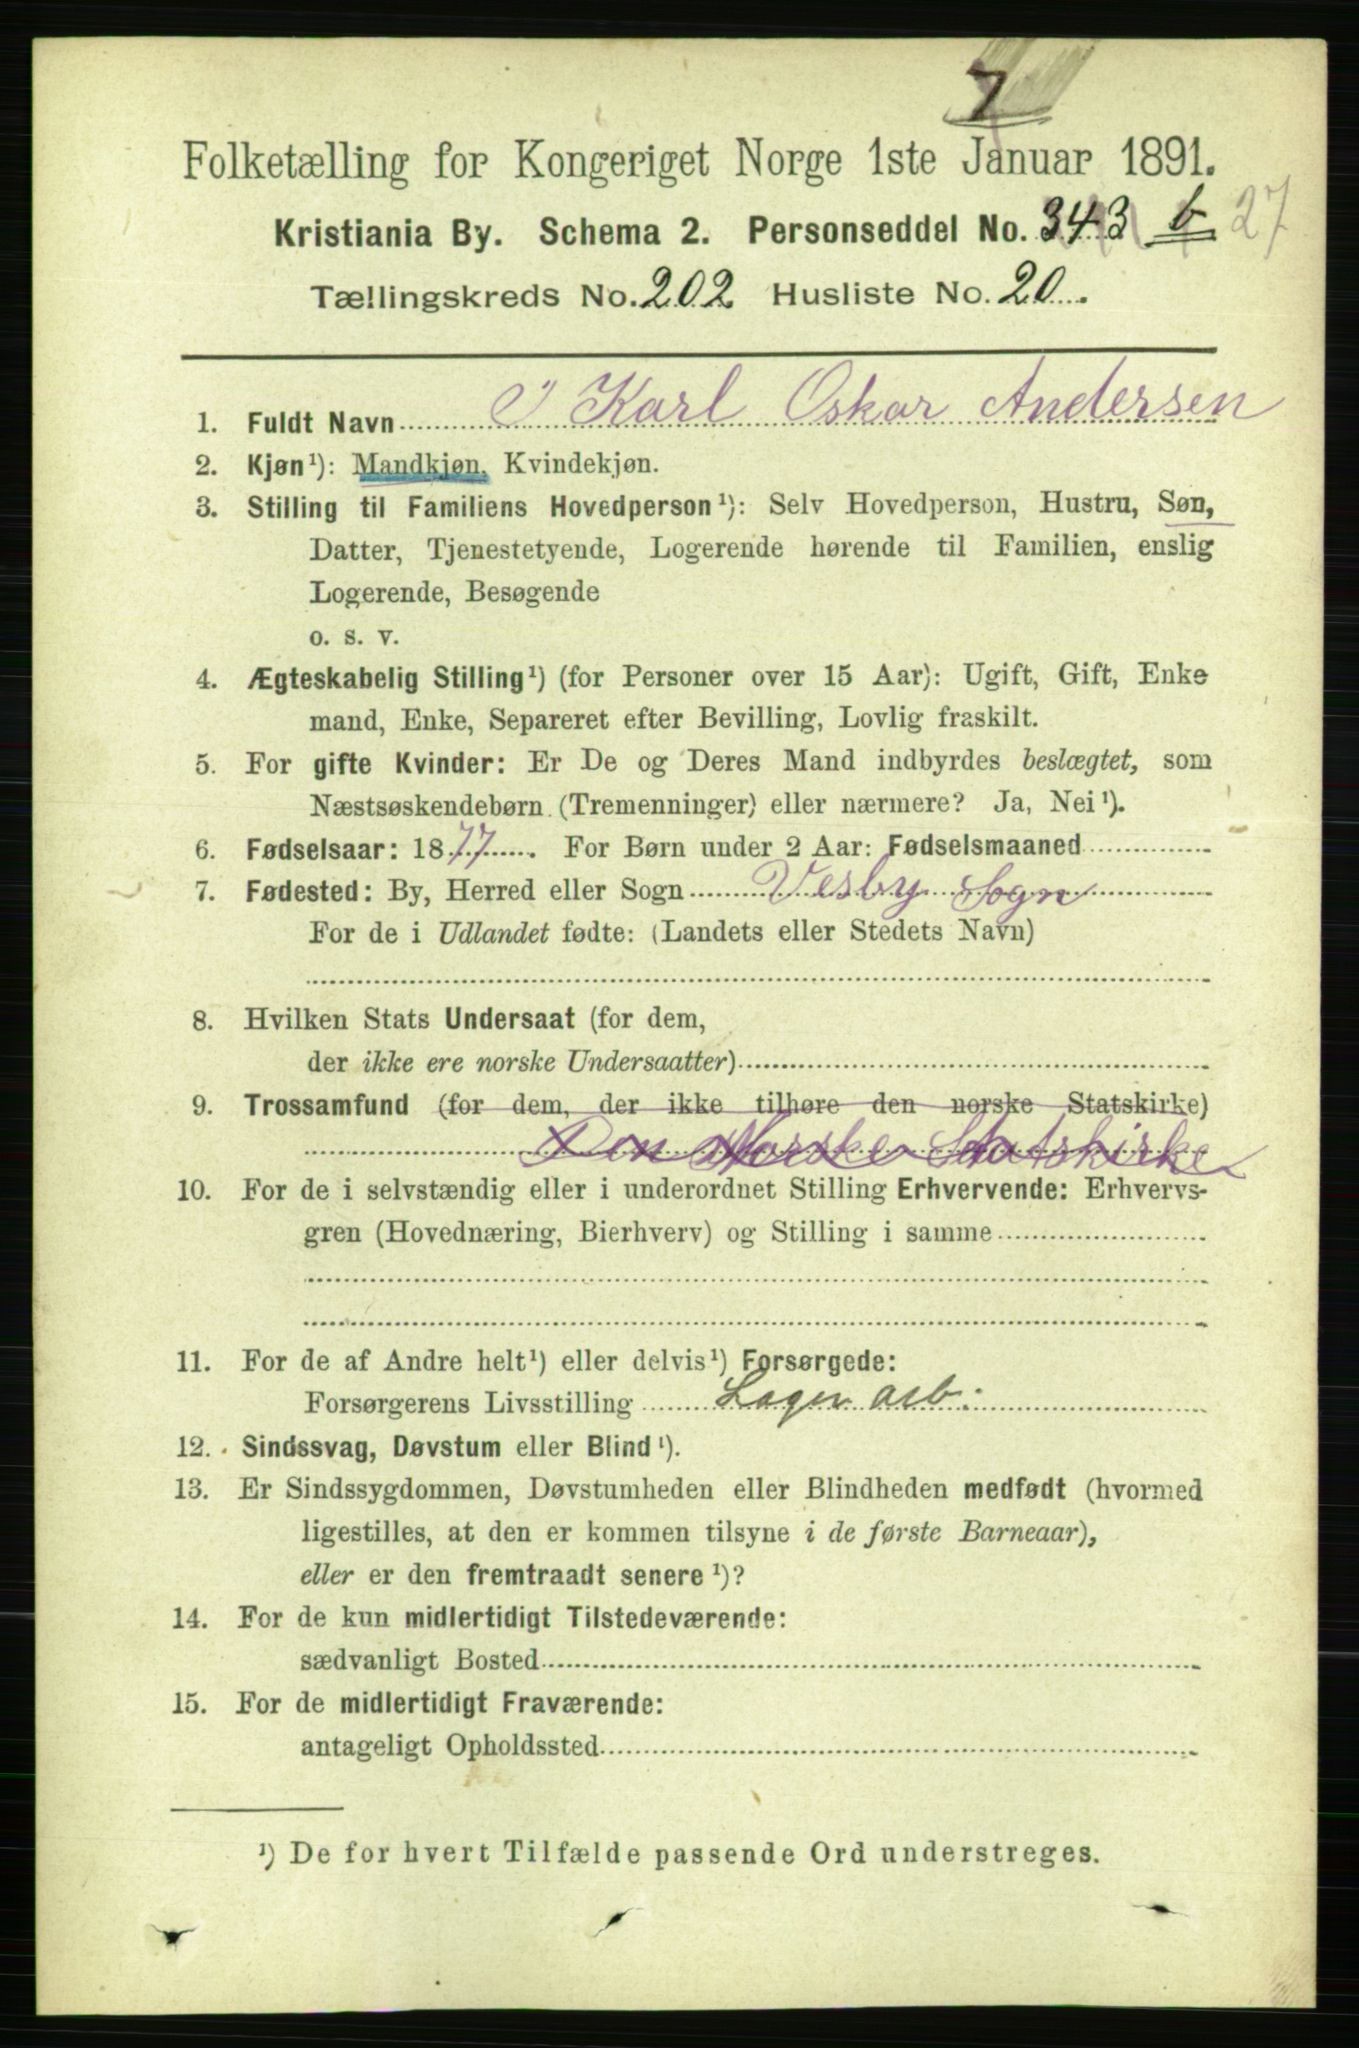 7
Folketælling for Kongeriget Norge 1ste Januar 1891.
Kristiania By. Schema 2. Personseddel No. 343 b 27
Tællingskreds No. 202 Husliste No. 20.
1. Fuldt Navn Karl Oskar Andersen
2. Kjøn¹): Mandkjøn, Kvindekjøn.
3. Stilling til Familiens Hovedperson¹): Selv Hovedperson, Hustru, Søn,
Datter, Tjenestetyende, Logerende hørende til Familien, enslig
Logerende, Besøgende
o. s. v.
4. Ægteskabelig Stilling¹) (for Personer over 15 Aar): Ugift, Gift, Enke
mand, Enke, Separeret efter Bevilling, Lovlig fraskilt.
5. For gifte Kvinder: Er De og Deres Mand indbyrdes beslægtet, som
Næstsøskendebørn (Tremenninger) eller nærmere? Ja, Nei¹).
6. Fødselsaar: 1877. For Børn under 2 Aar: Fødselsmaaned
7. Fødested: By, Herred eller Sogn Vesby Sogn
For de i Udlandet fødte: (Landets eller Stedets Navn)
8. Hvilken Stats Undersaat (for dem,
der ikke ere norske Undersaatter)
9. Trossamfund (for dem, der ikke tilhøre den norske Statskirke)
Den Norske Statskirke
10. For de i selvstændig eller i underordnet Stilling Erhvervende: Erhvervs-
gren (Hovednæring, Bierhverv) og Stilling i samme
11. For de af Andre helt¹) eller delvis¹) Forsørgede:
Forsørgerens Livsstilling Lager arb:
12. Sindssvag, Døvstum eller Blind¹).
13. Er Sindssygdommen, Døvstumheden eller Blindheden medfødt (hvormed
ligestilles, at den er kommen tilsyne i de første Barneaar),
eller er den fremtraadt senere¹)?
14. For de kun midlertidigt Tilstedeværende:
sædvanligt Bosted
15. For de midlertidigt Fraværende:
antageligt Opholdssted
¹) De for hvert Tilfælde passende Ord understreges.